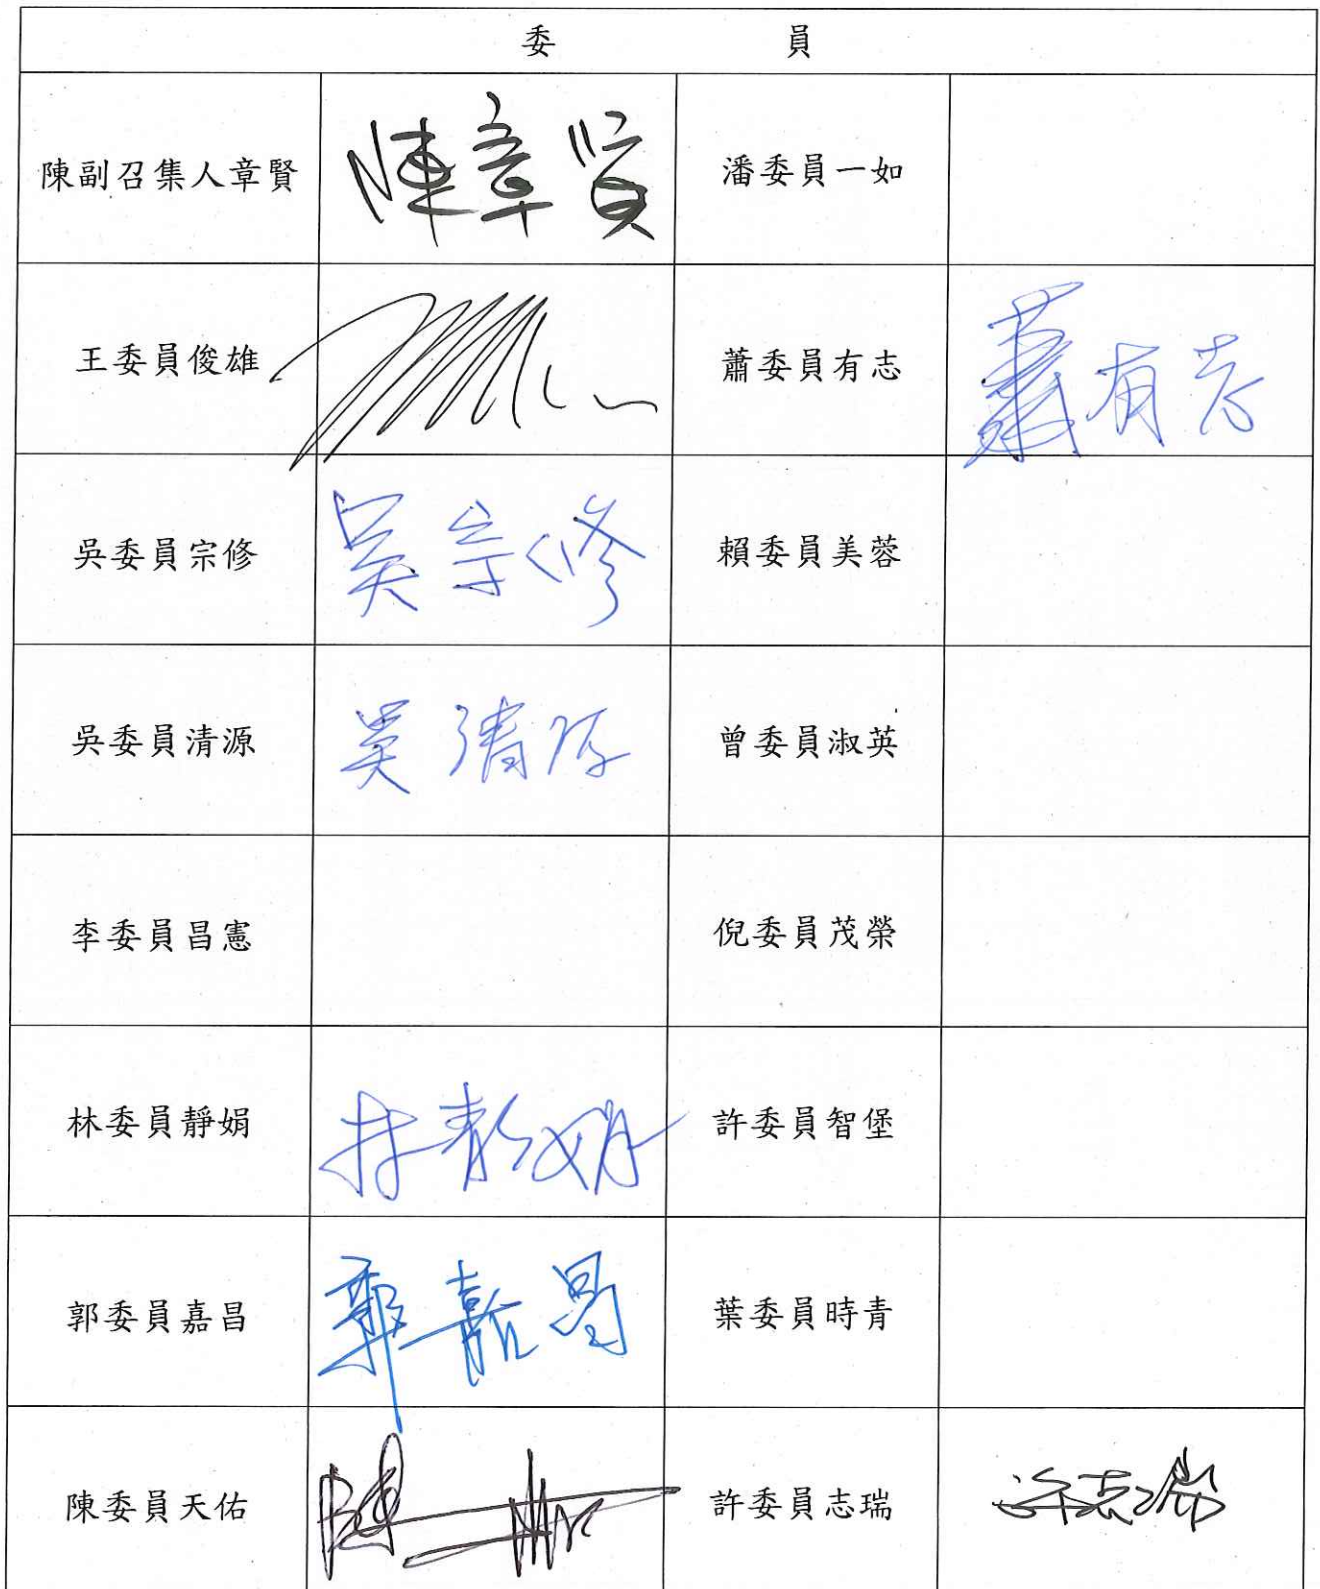 委員
陳副召集人章賢 陳章賢 潘委員一如
王委員俊雄 蕭委員有志 蕭有志
吳委員宗修 吳宗修 賴委員美蓉
吳委員清源 吳清源 曾委員淑英
李委員昌憲 倪委員茂榮
林委員靜娟 林靜娟 許委員智堡
郭委員嘉昌 郭嘉昌 葉委員時青
陳委員天佑 陳 許委員志瑞 許志瑞